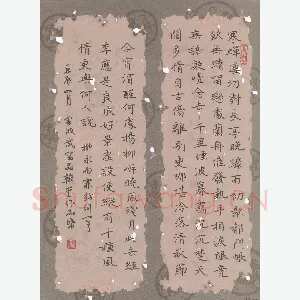 寒蟬淒切對長亭晚驟雨初歇都門帳
飲無緒留戀處蘭舟催發執手相看淚眼竟
無語凝噎念去去千里煙波暮靄沉沉楚天
闊多情自古傷離別更那堪冷落清秋節
今宵酒醒何處楊柳岸曉風殘月此去經
年應是良辰好景虛設便縱有千種風
情更與何人說 柳永雨霖鈴一首